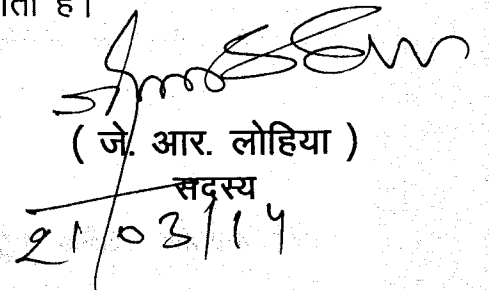 है।
( जे. आर. लोहिया )
सदस्य
21/03/14